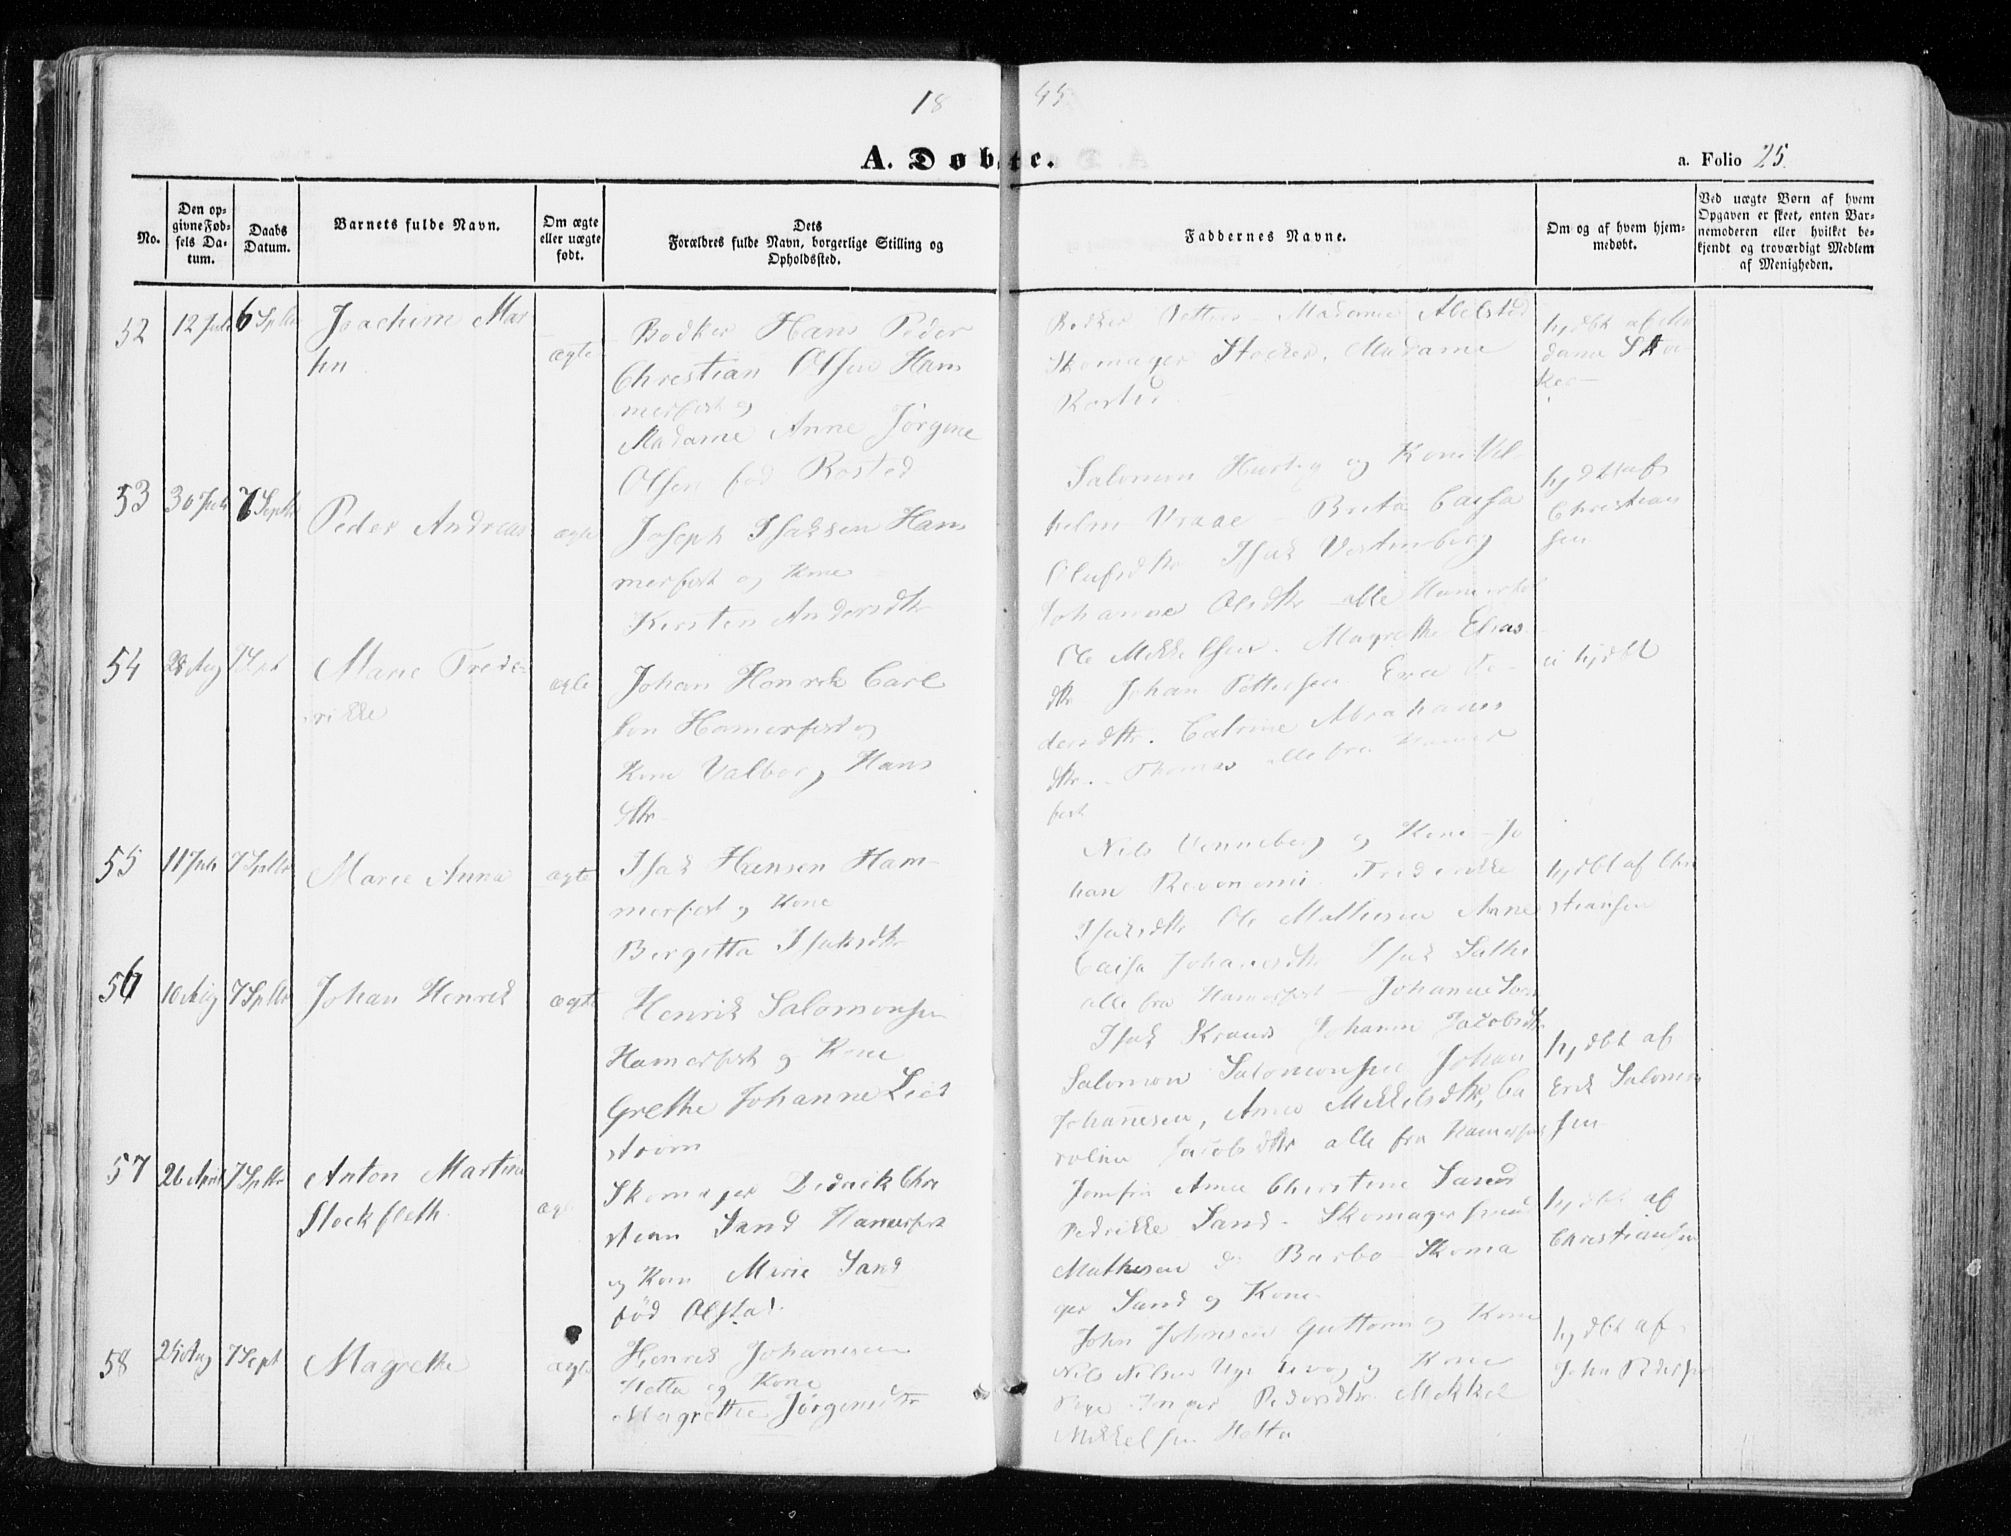 18 45
A. Døbte.
a. Folio 25.
No.
Den op-
givne Fød-
sels Da-
tum.
Daabs
Datum.
Barnets fulde Navn.
Om ægte
eller uægte
født.
Dets
Forældres fulde Navn, borgerlige Stilling og
Opholdssted.
Faddernes Navne.
Om og af hvem hjem-
medøbt.
Ved uægte Børn af hvem
Opgaven er skeet, enten Bar-
nemoderen eller hvilket be-
kjendt og troværdigt Medlem
af Menigheden.
52
12 Juli
6 Septbr
Joachim Mar
tin
ægte
Bødker Hans Peder
Christian Olsen Ham
merfest og
Madame Anne Jørgine
Olsen fød Rostad
Bødker Madame Abelsted
Skomager Stocker, Madame
Rostad
hjdbt af Ma
dame Sto
ker
53
30 Juli
7 Septbr
Peder Andreas
ægte
Joseph Isaksen Ham
merfest og Kone
Kirsten Andersdtr
Salomon og Kone Vil
helm Brita Caisa
Olufsdtr Isak
Johanne Olsdtr alle Hamerfest
hjdbt af
Christian
sen
54
28 Aug
7 Spt
Marie Frede
rikke
ægte
Johan Henrik Carl
sen Hamerfest og
Kone Valborg Hans
dtr
Ole Mikkelsen. Magrethe Elias
dtr Johan Pettersen Eva Pe
dersdtr. Catrine Abrahams
dtr. Thomas alle fra Hamer
fest
ei hjdbt
55
11 Juli
7 Septbr
Marie Anna
ægte
Isak Hansen Ham-
merfest og Kone
Birgitta Isaksdtr
Nils Venneberg og Kone Jo
han Friderikke
Isaksdtr Ole Mathisen Anne
Caisa Johanesdtr Isak
alle fra Hamerfest Johanne
hjdbt af Chri
stiansen
56
10 Aug
7 Septbr
Johan Henrik
ægte
Henrik Salomonsen
Hamerfest og Kone
Grethe Johanne Lied
strøm
Isak Johanne Jacobsdtr
Salomon Salomonsen Johan
Johannesen, Anne Mikkelsdtr, Ca
roline Jacobsdtr alle fra Hamerfest
hjdbt af
Erik Salomon
sen
57
26 April
7 Septbr
Anton Martin
Stockfleth
ægte
Skomager Didrick Chri
stian Sand Hamerfest
og Kone Marie Sand
fød Olstad.
Jomfru Anne Christine Sand
Fedrikke Sand. Skomager
Mathisen Barbo Skoma
ger Sand og Kone
hjdbt af
Christiansen
58
25 Aug
7 Sept
Magrethe
ægte
Henrik Johanesen
Hetta og Kone
Magrethe Jørgensdtr
John Johnsen Guttorm og Kone
Nils Nilsen og Kone
Inger Pedersdtr Mikkel
Mikkelsen Hetta
hjdbt af
John Pedersen